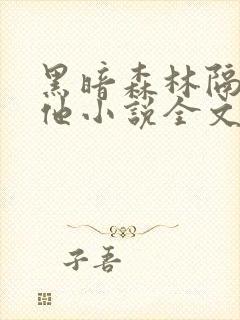 黑暗森林隔
他小说全文
子吾